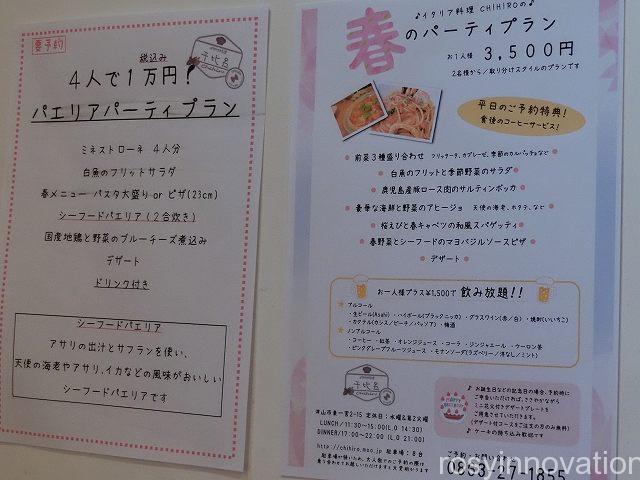 要予約
税込み
4人で1万円!
パエリアパーティプラン
千比呂
ミネストローネ 4人分
白魚のフリットサラダ
春メニュー パスタ大盛り or ピザ(23cm)
シーフードパエリア(2合炊き)
国産地鶏と野菜のブルーチーズ煮込み
デザート
ドリンク付き
シーフードパエリア
アサリの出汁とサフランを使い、
天使の海老やアサリ、イカなどの風味がおいしい
シーフードパエリアです
♪イタリア料理 CHIHIROの♪
春のパーティプラン
お1人様 3,500円
2名様から/取り分けスタイルのプランです
平日のご予約特典!
食後のコーヒーサービス!
前菜3種盛り合わせ フリッタータ、カプレーゼ、季節のカルパッチョなど
白魚のフリットと季節野菜のサラダ
鹿児島産豚ロース肉のサルティンボッカ
豪華な海鮮と野菜のアヒージョ 天使の海老、ホタテ、など
桜えびと春キャベツの和風スパゲッティ
春野菜とシーフードのマヨバジルソースピザ
デザート
お一人様プラス¥1,500で 飲み放題!!
★ アルコール
・生ビール(Asahi)・ハイボール(ブラックニッカ)・グラスワイン(赤/白)・焼酎(いいちこ)
・カクテル(カシス/ピーチ/パッソア)・梅酒
★ ノンアルコール
・コーヒー・紅茶・オレンジジュース・コーラ・ジンジャエール・ウーロン茶
・ピンクグレープフルーツジュース・モナンソーダ(ラズベリー/洋なし/ミント)
千比呂
津山市東一宮2-15 定休日:水曜&第2火曜
LUNCH/11:30~15:00(L.O 14:30)
DINNER/17:00~22:00 (L.O 21:00)
http://chihiro.moo.jp 駐車場:8台
♪ お誕生日などの記念日の場合、予約時に
ご申告いただければ、ささやかながら
ミニ花火付きデザートプレートを
ご用意させていただきます。
(デザート付コースをご注文の方のみ無料)
♪ ケーキの持ち込み歓迎です
ご予約・お問い
0868-27-1855
rosyinnovation